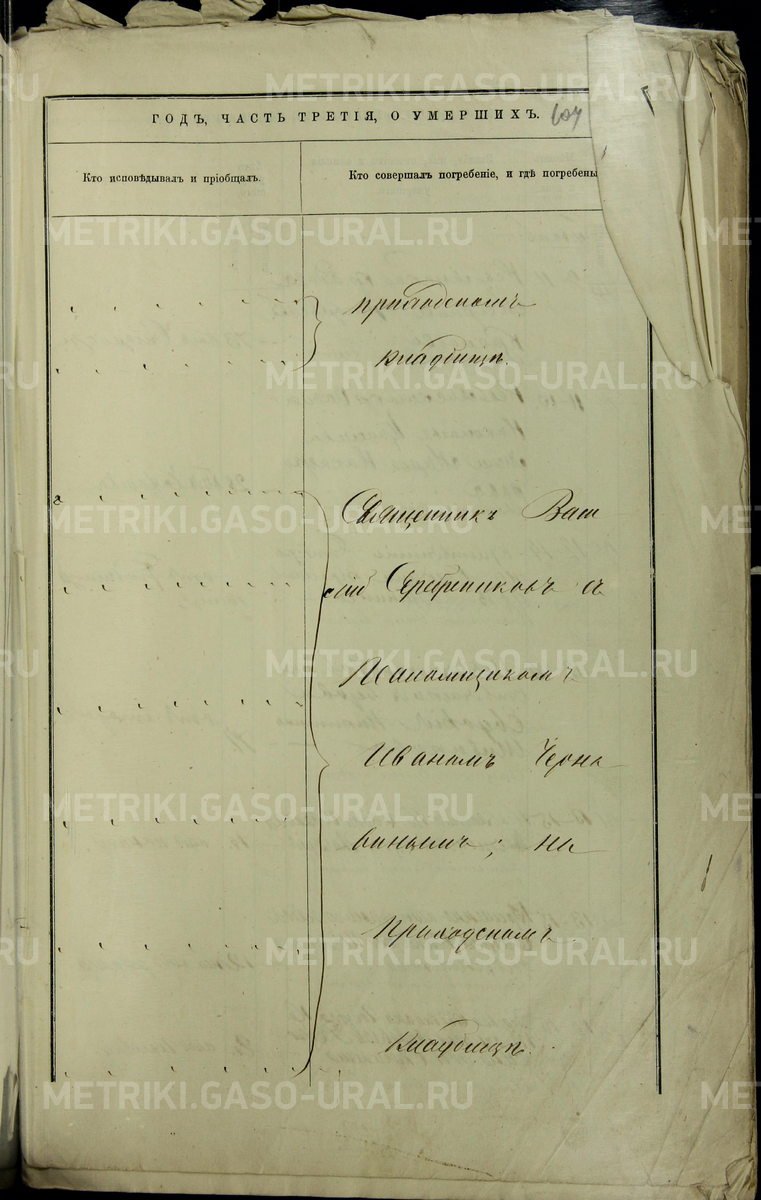 ГОДЪ, ЧАСТЬ ТРЕТІЯ, О УМЕРШИХЪ. 104
Кто исповѣдывалъ и пріобщалъ.
Кто совершалъ погребеніе, и гдѣ погребены
приходскомъ
кладбищѣ.
Священникъ Васи
лій Серебрениковъ съ
Псаломщикомъ
Иваномъ Черно
винымъ; на
Приходскомъ
кладбищѣ.
METRIKI.GASO-URAL.RU